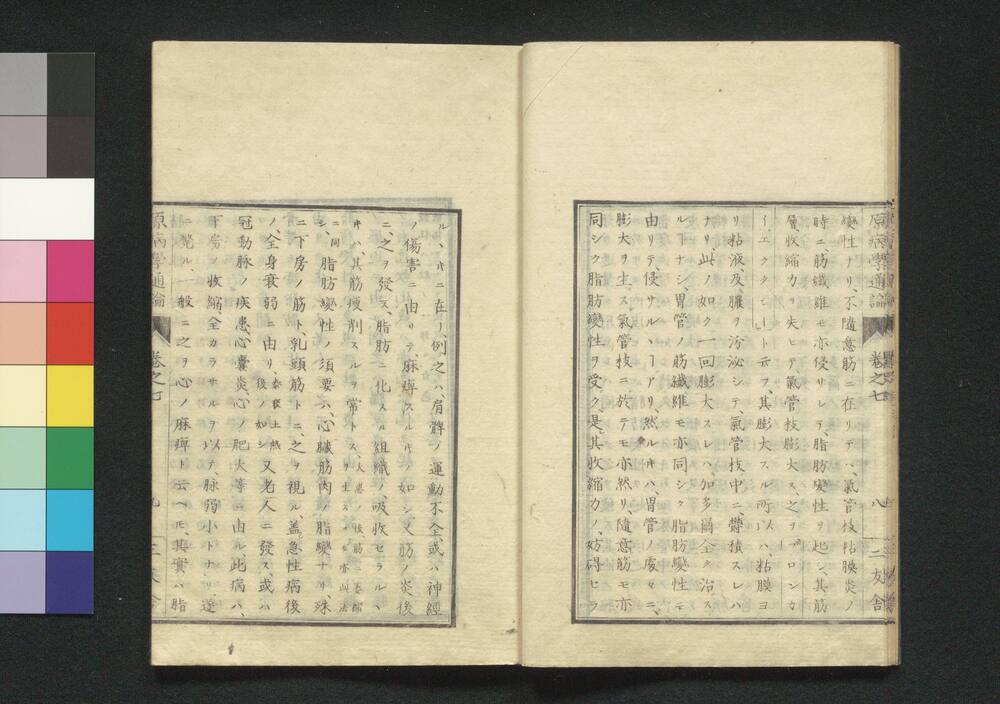 原病學通論 卷之七 八 二友舎
變性ナリ不隨意筋ニ在リテハ氣管枝粘膜炎ノ
時ニ筋纖維モ亦侵サレテ脂肪變性ヲ起シ其筋
層收縮力ヲ失ヒテ氣管枝膨大ス之ヲブロンカ
ーエクタシート云フ其膨大スル所ハ粘膜ヨ
リ粘液及ヒ膿ヲ分泌シテ氣管枝中ニ鬱積スレハ
ナリ此ノ如ク一回膨大スレハ加多爾全ク治ス
ルヿナシ胃管ノ筋纖維モ亦同シク脂肪變性ニ
由リテ侵サルヽヿアリ然ルキハ胃管ノ處々ニ
膨大ヲ生ス氣管枝ニ於テモ亦然リ隨意筋モ亦
同シク脂肪變性ヲ受ク是其收縮力ノ妨碍セラ
ルヽキニ在リ例之ハ肩髀ノ運動不全或ハ神經
ノ傷害ニ由リテ麻痺スルキノ如シ又筋ノ炎後
ニ之ヲ發ス脂肪ニ化スル組織ノ吸收セラルヽ
キハ其筋瘦削スルヲ常トス
ニ同シ脂肪變性ノ須要ハ心臟筋肉ノ脂變ナリ殊
ニ下房ノ筋ト乳頭筋トニ之ヲ視ル蓋急性病後
ノ全身衰弱ニ由リ 後ノ如シ 又老人ニ發ス或ハ
冠動脉ノ疾患心囊炎心ノ肥大等ニ由ル此病ハ
下房ノ收縮全カラサルヲ以テ脉弱小トナリ遂
ニ斃ル一般ニ之ヲ心ノ麻痺ト云ヘモ其實ハ脂
原病學通論 卷之七 九